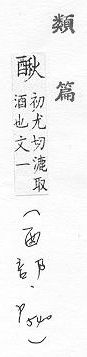 類篇
初尤切漉取
酒也文一
(酉部．P540)